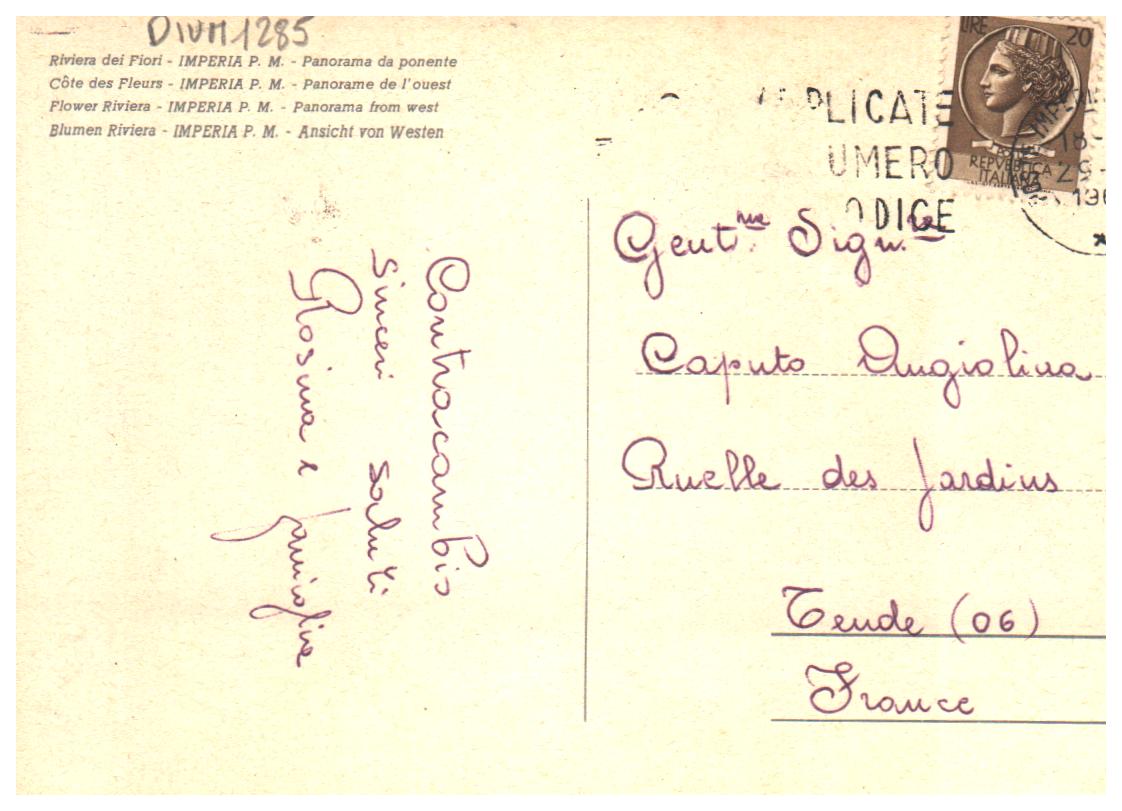 DIVM1285
Riviera dei Fiori - IMPERIA P. M. - Panorama da ponente
Côte des Fleurs - IMPERIA P. M. - Panorame de l'ouest
Flower Riviera - IMPERIA P. M. - Panorama from west
Blumen Riviera - IMPERIA P. M. - Ansicht von Westen
LIRE 20
REPVBBLICA
ITALIANA
PLICATE
UMERO
ODICE
18
29
196
Gent.me Sign.re
Caputo Angiolina
Ruelle des Jardins
Tende (06)
France
Contracambio
Sinceri saluti
Rosina e famiglia